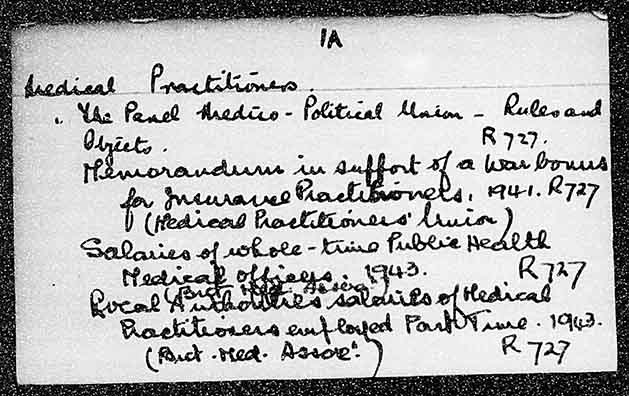 1A
Medical Practitioners.
The Panel Medico-Political Union - Rules and
Objects. R 727.
Memorandum in support of a War bonus
for Insurance Practitioners, 1941. R 727
(Medical Practitioners' Union)
Salaries of whole-time Public Health
Medical officers. 1943. R 727
(Brit. Med. Assoc.)
Local Authorities salaries of Medical
Practitioners employed Part Time. 1943.
(Brit. Med. Assocn.) R 727